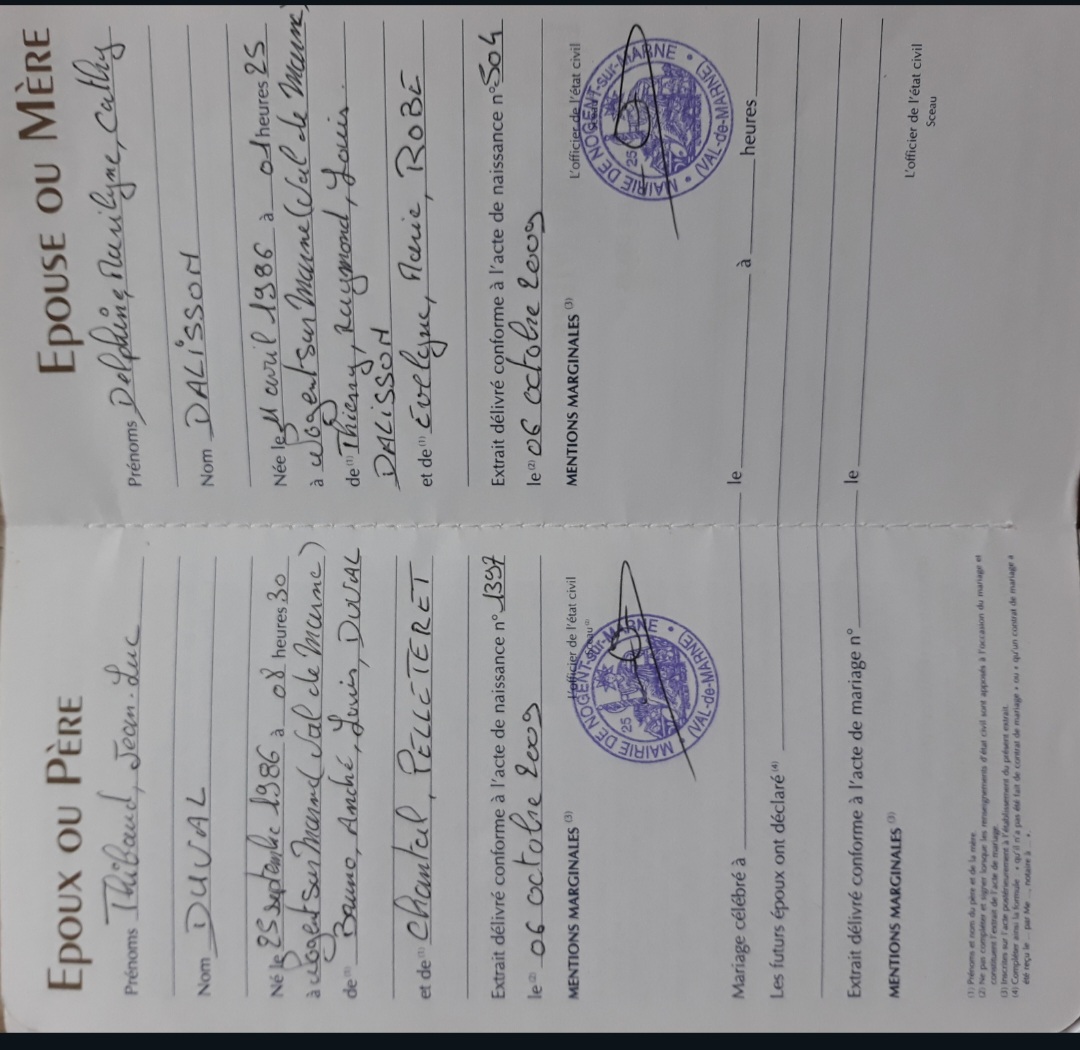 EPOUX OU PÈRE
Prénoms Thibaud, Jean-Luc
Nom DUVAL
Né le 25 septembre 1986 à 08 heures 30
à Nogent sur Marne (Val de Marne)
de (1) Bruno, André, Louis, DUVAL
et de (1) Chantal, PELLETERET
Extrait délivré conforme à l'acte de naissance n° 1397
le (2) 06 octobre 2009
L'officier de l'état civil
Sceau
MENTIONS MARGINALES (3)
MAIRIE DE NOGENT-sur-MARNE • (VAL-de-MARNE) •
25
EPOUSE OU MÈRE
Prénoms Delphine, Marilyne, Cathy
Nom DALISSON
Née le 11 avril 1986 à 01 heures 25
à Nogent sur Marne (Val de Marne)
de (1) Thierry, Raymond, Louis.
DALISSON
et de (1) Evelyne, Marie, ROBE
Extrait délivré conforme à l'acte de naissance n° 504
le (2) 06 octobre 2009
L'officier de l'état civil
MENTIONS MARGINALES (3)
MAIRIE DE NOGENT-sur-MARNE • (VAL-de-MARNE) •
25
Mariage célébré à le à heures
Les futurs époux ont déclaré (4)
Extrait délivré conforme à l'acte de mariage n° le
MENTIONS MARGINALES (3)
L'officier de l'état civil
Sceau
(1) Prénoms et nom du père et de la mère.
(2) Ne pas compléter et signer lorsque les renseignements d'état civil sont apposés à l'occasion du mariage et
constituent l'extrait de l'acte de mariage.
(3) Inscrites sur l'acte postérieurement à l'établissement du présent extrait.
(4) Compléter ainsi la formule : « qu'il n'a pas été fait de contrat de mariage » ou « qu'un contrat de mariage a
été reçu le ... par Me ..., notaire à ... ».